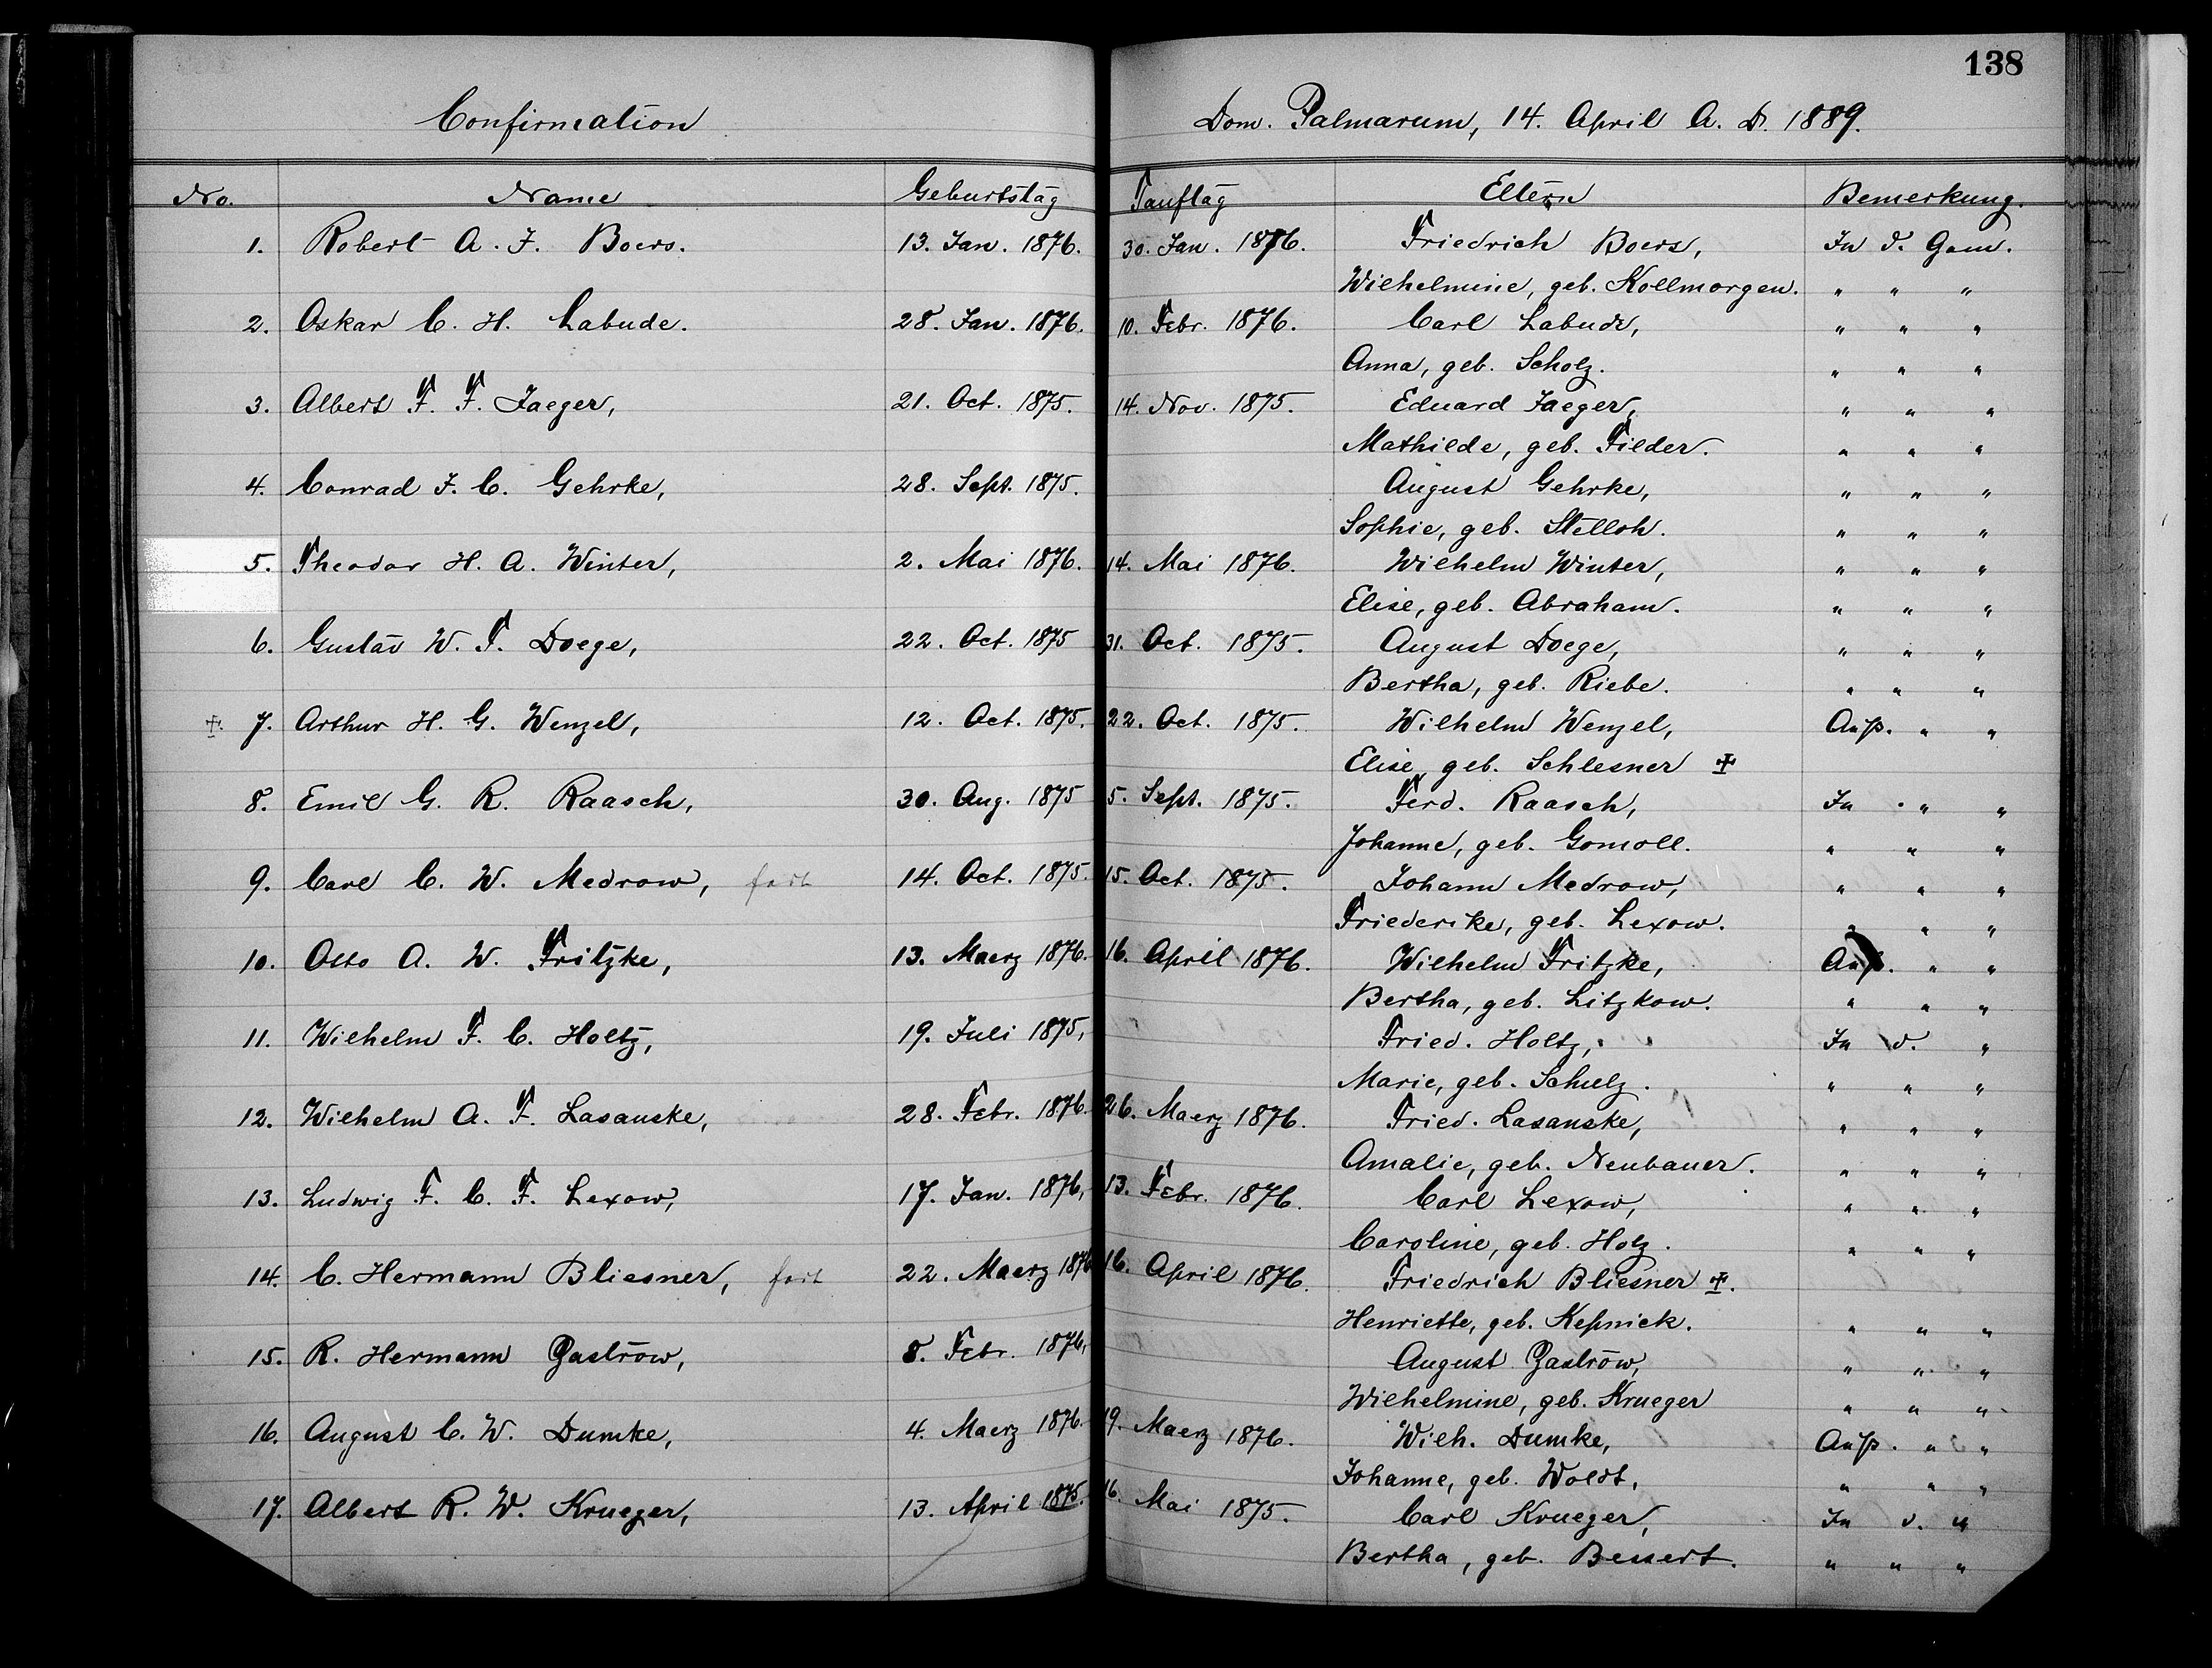 138
Confirmation Dom. Palmarum, 14. April A. D. 1889.
No. Name Geburtstag Tauftag Eltern Bemerkung.
1. Robert A. F. Boers. 13. Jan. 1876. 30. Jan. 1876. Friedrich Boers, In d. Gem.
Wilhelmine, geb. Kollmorgen. " " "
2. Oskar C. H. Labude. 28. Jan. 1876. 10. Febr. 1876. Carl Labude, " " "
Anna, geb. Scholz. " " "
3. Albert F. F. Jaeger, 21. Oct. 1875. 14. Nov. 1875. Eduard Jaeger, " " "
Mathilde, geb. Fielder. " " "
4. Conrad J. C. Gehrke, 28. Sept. 1875. August Gehrke, " " "
Sophie, geb. Stelloh. " " "
5. Theodor H. A. Winter, 2. Mai 1876. 14. Mai 1876. Wilhelm Winter, " " "
Elise, geb. Abraham. " " "
6. Gustav W. F. Doege, 22. Oct. 1875 31. Oct. 1875. August Doege, " " "
Bertha, geb. Riebe. " " "
‡. 7. Arthur H. G. Wenzel, 12. Oct. 1875. 22. Oct. 1875. Wilhelm Wenzel, Auß. " "
Elise, geb. Schlesner ‡
8. Emil G. R. Raasch, 30. Aug. 1875 5. Sept. 1875. Ferd. Raasch, In " "
Johanne, geb. Gomoll. " " "
9. Carl C. W. Medrow, fort 14. Oct. 1875. 15. Oct. 1875. Johann Medrow, " " "
Friederike, geb. Lexow. " " "
10. Otto A. W. Fritzke, 13. Maerz 1876. 16. April 1876. Wilhelm Fritzke, Auß. " "
Bertha, geb. Litzkow. " " "
11. Wilhelm F. C. Holtz, 19. Juli 1875, Fried. Holtz, In d. "
Marie, geb. Schulz. " " "
12. Wilhelm A. F. Lasanske, 28. Febr. 1876. 26. Maerz 1876. Fried. Lasanske, " " "
Amalie, geb. Neubauer. " " "
13. Ludwig F. C. F. Lexow, 17. Jan. 1876, 13. Febr. 1876. Carl Lexow, " " "
Caroline, geb. Holz. " " "
14. C. Hermann Bliesner, fort 22. Maerz 1876 16. April 1876. Friedrich Bliesner ‡.
Henriette, geb. Kepnick. " " "
15. R. Hermann Zastrow, 8. Febr. 1876, August Zastrow, " " "
Wilhelmine, geb. Krueger " " "
16. August C. W. Dumke, 4. Maerz 1876. 19. Maerz 1876. Wilh. Dumke, Auß. " "
Johanne, geb. Woldt, " " "
17. Albert R. W. Krueger, 13. April 1875. 16. Mai 1875. Carl Krueger, In d. "
Bertha, geb. Bessert. " " "